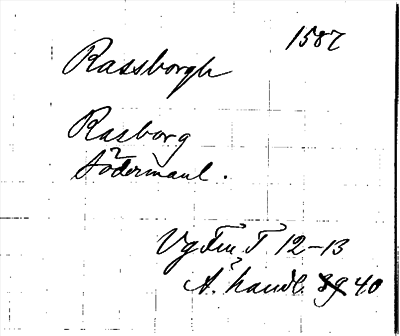 1587
Rassborgh
Rasborg
?
Södermanl.
Vg Fru T 12-13
A. handl. 40